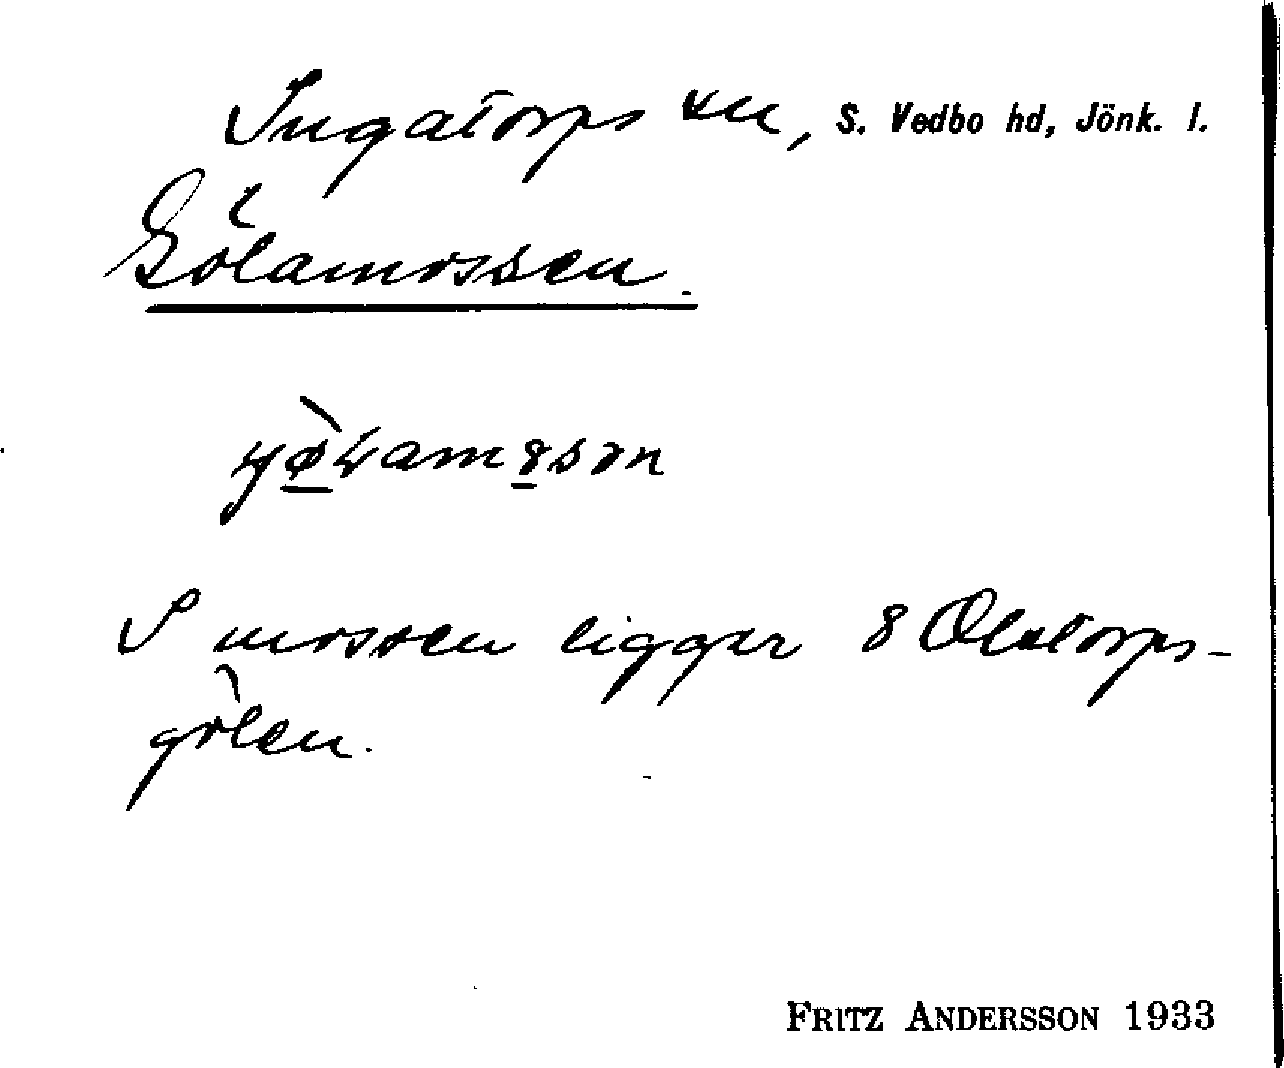 Ingatorps sn, S. Vedbo hd, Jönk. l.
Gölamossen.
I mossen ligger 8 Olstorps-
gölen.
FRITZ ANDERSSON 1933